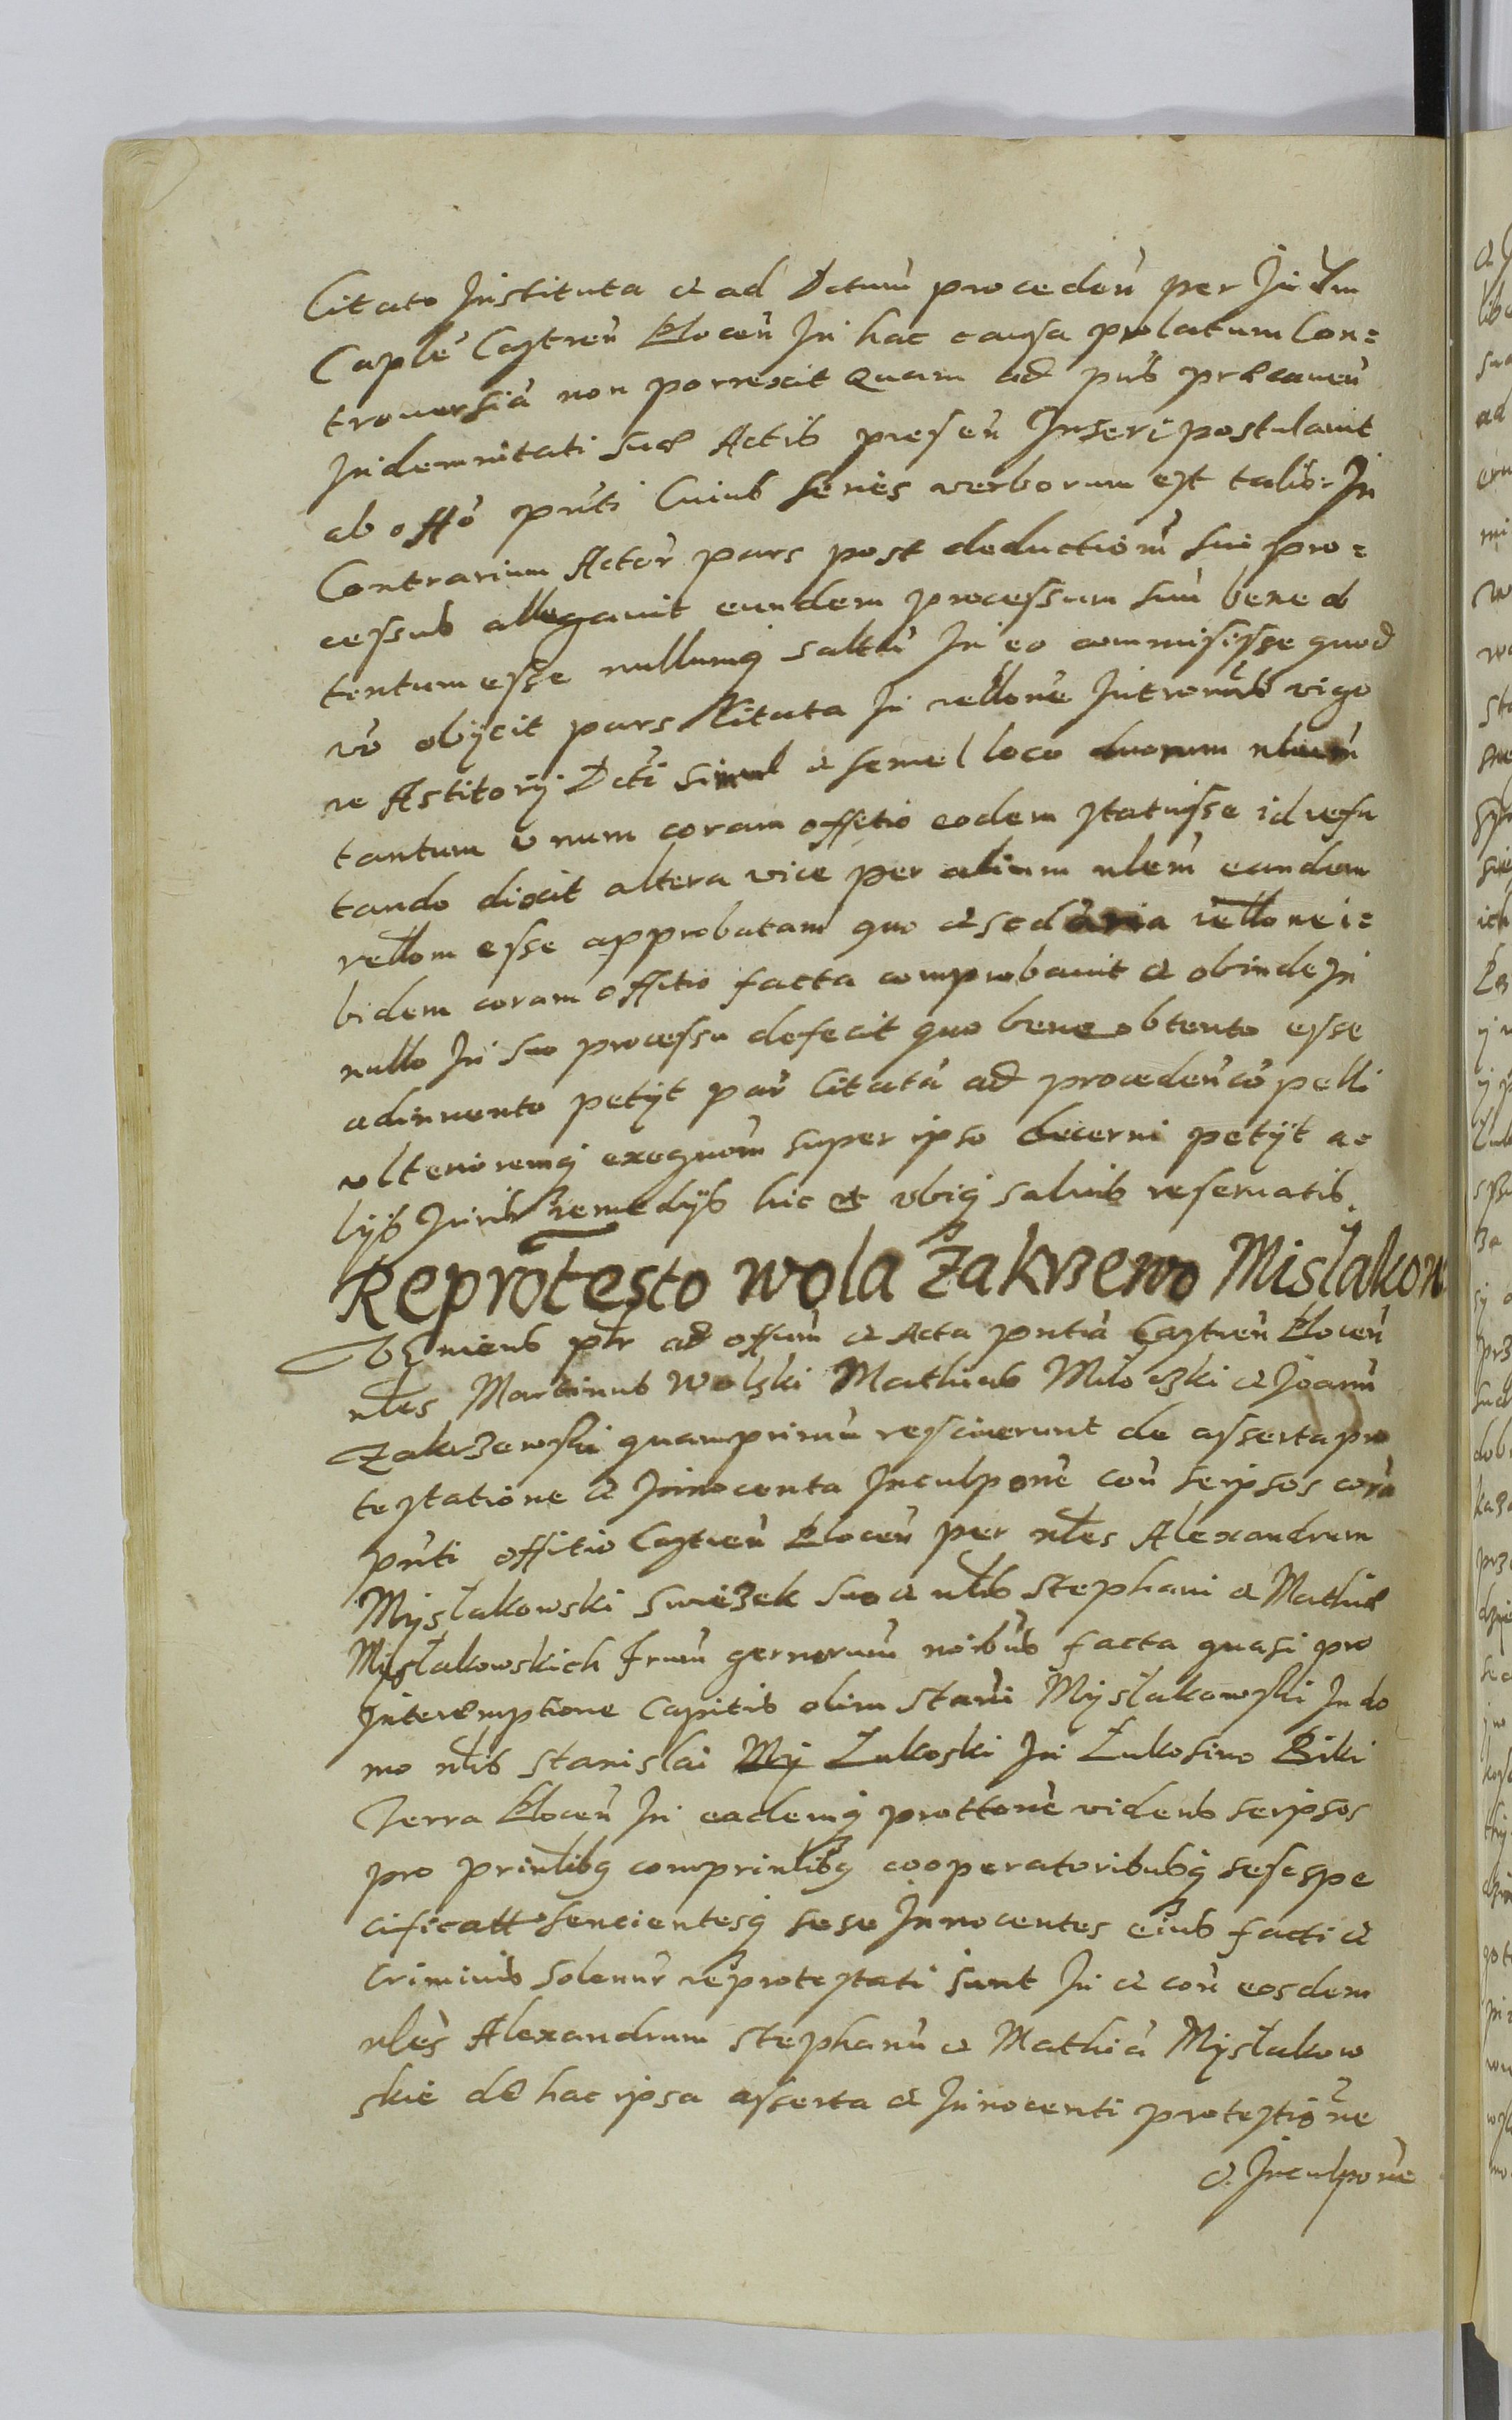 Citato Instituta et ad Dctum proceden per Iudm
Caple Castren Plocen In hac causa prolatum Con=
trouersia non porrexit Quam ad pns precauen
Indemnitati sue Actis presen Inseri postulauit
ab offo pnti Cuius series verborum est talis: In
Contrarium Actor pars post deductiom sui pro=
cessus allegauit eundem processum suu bene ob
tentum esse nullumq saltu In eo commisisse quod
vo obijcit pars Citata In rellone Intromis vigo
re Astitorij Dcti simul et semel loco duorum nlium
tantum vnum coram offitio eodem statuisse id refu
tando dixit altera vice per alium nlem eandem
rellom esse approbatam quo et scdaria rellone i=
bidem coram offitio facta comprobauit et obinde In
nullo In suo processu defecit quo bene obtento esse
adinuento petijt par Citata ad proceden co pelli
vlterioremq exequom super ipso decerni petijt a=
lijs Juris remedijs hic et vbiq saluis reseruatis.
Reprotesto Wola Zakrzewo Mislakow
Veniens ptr ad offium et Acta pntia Castren Plocen
nles Martinus Wolski Mathias Miloczki et Joann
Zakrzewski quamprimu resciuerunt de asserta pro
testatione et Innocenta Inculpone con seipsos cora
pnti offitio Castren Plocen per nles Alexandrum
Myslakowski Swiezek suo et nlis Stephani et Mathie
Mislakowskich frum germorum noibus facta quasi pro
Interemptione Capitis olim Stani Myslakowski In do
mo nlis Stanislai My Lukoski In Lukosino Biki
Terra Plocen In eademq prottone videns seipsos
pro prinlibq comprinlibq cooperatoribusq sese spe
cificatt sencientesq sese Innocentes eius facti et
criminis solenur reprotestati sunt In et con eosdem
nles Alexandrum Stephanu et Mathia Myslakow
skie de hac ipsa asserta et Innocenti protestione
et Inculpone